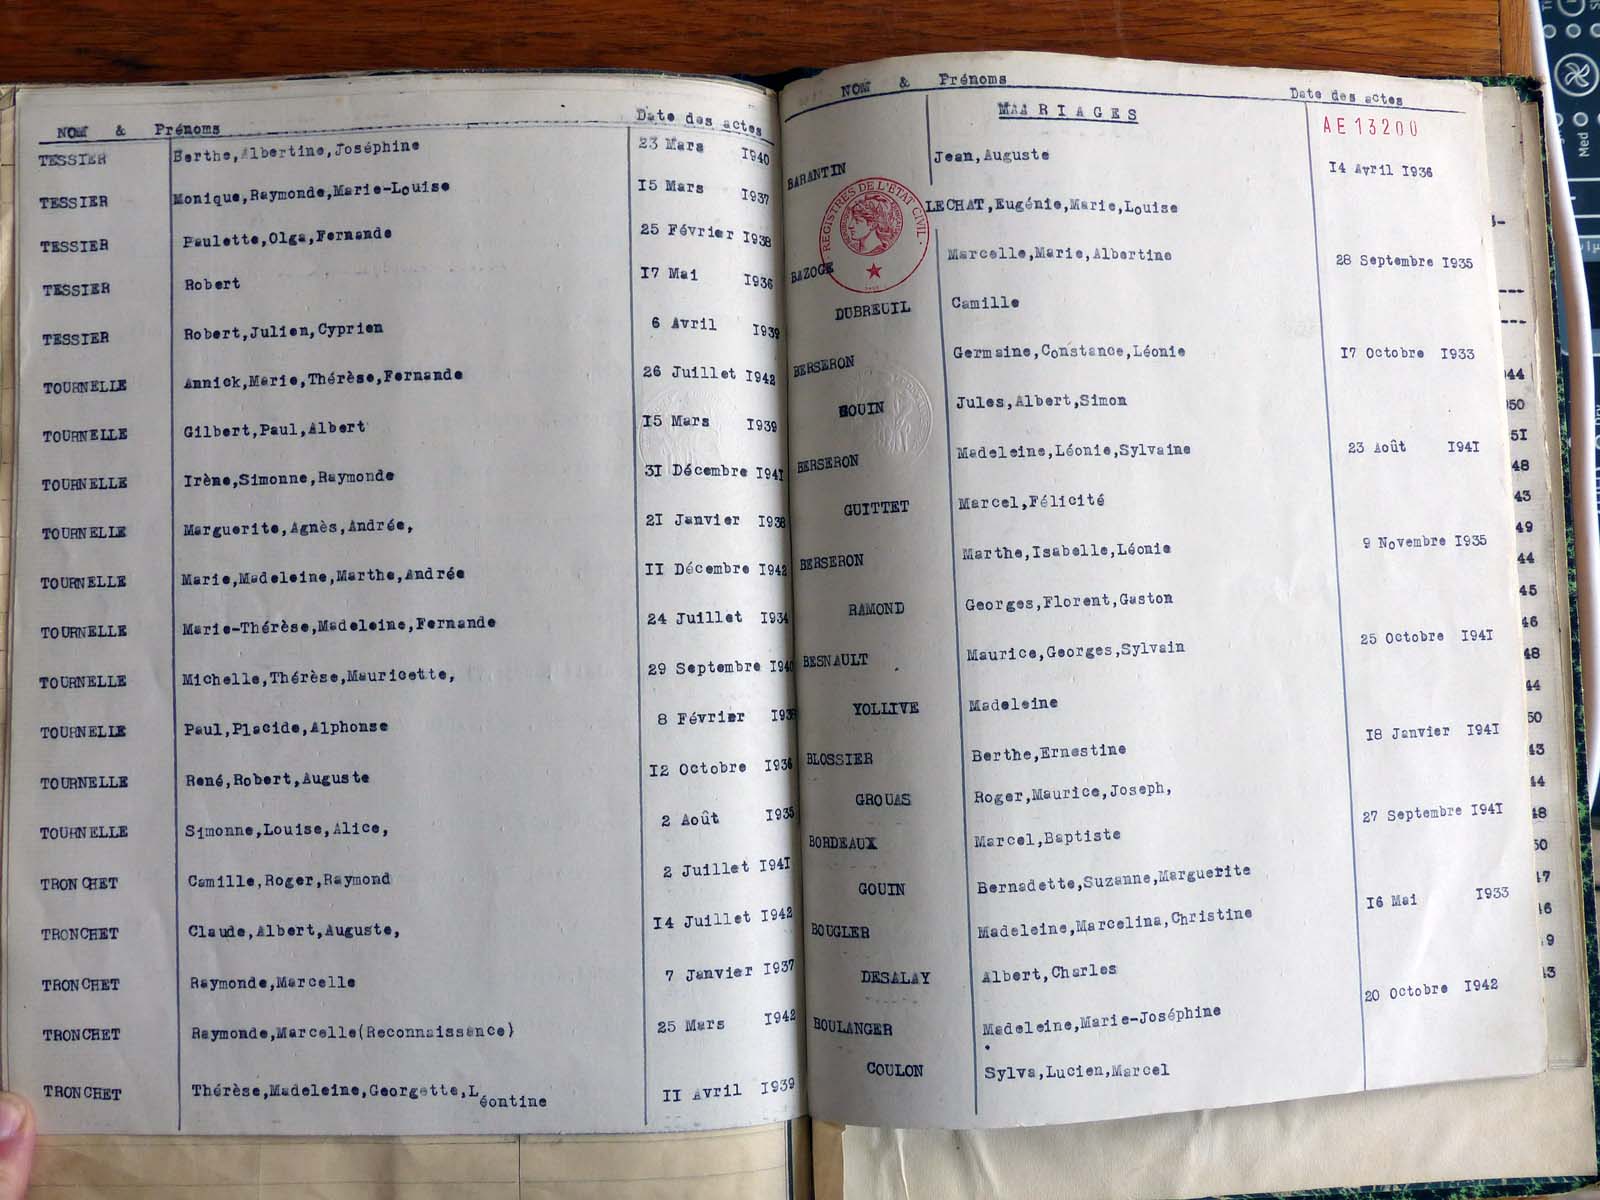 NOM & Prénoms Date des actes
TESSIER Berthe,Albertine,Joséphine 23 Mars I940
TESSIER Monique,Raymonde,Marie-Louise I5 Mars I937
TESSIER Paulette,Olga,Fernande 25 Février I938
TESSIER Robert I7 Mai I936
TESSIER Robert,Julien,Cyprien 6 Avril I939
TOURNELLE Annick,Marie,Thérèse,Fernande 26 Juillet I942
TOURNELLE Gilbert,Paul,Albert I5 Mars I939
TOURNELLE Irène,Simonne,Raymonde 3I Décembre I94I
TOURNELLE Marguerite,Agnès,Andrée, 2I Janvier I938
TOURNELLE Marie,Madeleine,Marthe,Andrée II Décembre I942
TOURNELLE Marie-Thérèse,Madeleine,Fernande 24 Juillet I934
TOURNELLE Michelle,Thérèse,Mauricette, 29 Septembre I940
TOURNELLE Paul,Placide,Alphonse 8 Février
TOURNELLE René,Robert,Auguste I2 Octobre I936
TOURNELLE Simonne,Louise,Alice, 2 Août I935
TRONCHET Camille,Roger,Raymond 2 Juillet I94I
TRONCHET Claude,Albert,Auguste, I4 Juillet I942
TRONCHET Raymonde,Marcelle 7 Janvier I937
TRONCHET Raymonde,Marcelle(Reconnaissance) 25 Mars I942
TRONCHET Thérèse,Madeleine,Georgette,Léontine II Avril I939
NOM & Prénoms Date des actes
MAARIAGES
AE13200
BARANTIN Jean,Auguste I4 Avril I936
LECHAT,Eugénie,Marie,Louise
REGISTRES DE L'ETAT CIVIL
BAZOGE Marcelle,Marie,Albertine 28 Septembre I935
DUBREUIL Camille
BERSERON Germaine,Constance,Léonie I7 Octobre I933
GOUIN Jules,Albert,Simon
BERSERON Madeleine,Léonie,Sylvaine 23 Août I94I
GUITTET Marcel,Félicité
BERSERON Marthe,Isabelle,Léonie 9 Novembre I935
RAMOND Georges,Florent,Gaston
BESNAULT Maurice,Georges,Sylvain 25 Octobre I94I
YOLLIVE Madeleine
BLOSSIER Berthe,Ernestine I8 Janvier I94I
GROUAS Roger,Maurice,Joseph,
BORDEAUX Marcel,Baptiste 27 Septembre I94I
GOUIN Bernadette,Suzanne,Marguerite
BOUGLER Madeleine,Marcelina,Christine I6 Mai I933
DESALAY Albert,Charles
BOULANGER Madeleine,Marie-Joséphine 20 Octobre I942
COULON Sylva,Lucien,Marcel
44
50
5I
48
43
49
44
45
46
48
44
50
43
44
48
50
47
46
9
43
Med